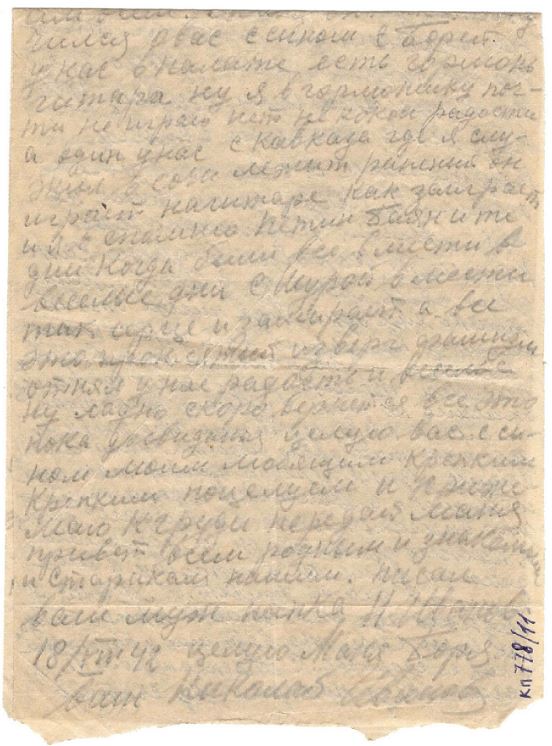 чился у вас с сином с Борей.
у нас в палате есть гормонь
гитара ну я в гормонику поч-
ти не играю нет не какой радости
а один у нас с Кавказа где я слу-
жил в сочи лежит раненый он
играет на гитаре как заиграет
и я вспомню Петин Баян и те
дни когда были все вмести в
веселые дни с Шурой вмести
так серце и замирает а все
это проклятый изверг фашизм
отнял у нас радость и веселье
ну ладно скоро вернется все это
пока досвидания целую вас с си-
ном моим любящим крепким
крепким поцелуем и прижи-
маю к груди передай Маня
привет всем родным и знакомым
и старикам нашим. писал
ваш муж папка Н.
18/VIII 42 целую Маня Боря
ваш Николай
КП 778/11